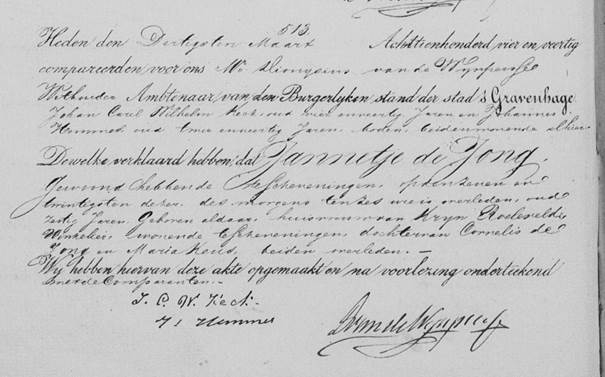 513
Heden den Dertigsten Maart Achttienhonderd vier en veertig
compareerden voor ons Mr van de Wynpersse
Wethouder Ambtenaar van den Burgerlyken stand der stad 's Gravenhage
Johan Carl Wilhelm Keck oud vier en veertig Jaren en Johannes
Hemmes oud twee en veertig Jaren, boden, beiden wonende alhier
Dewelke verklaard hebben, dat Jannetje de Jong,
Gewoond hebbende te Scheveningen, op den zeven en
twintigsten dezer, des morgens ten zes ure is overleden, oud
zestig Jaren, Geboren aldaar, huisvrouw van Kryn Roeleveld,
Winkelier, wonende te Scheveningen, dochter van Cornelis de
Jong en Maria beiden overleden. —
Wij hebben hiervan deze akte opgemaakt en na voorlezing onderteekend
met de Comparanten. —
J. C. W. Keck.
J. Hemmes